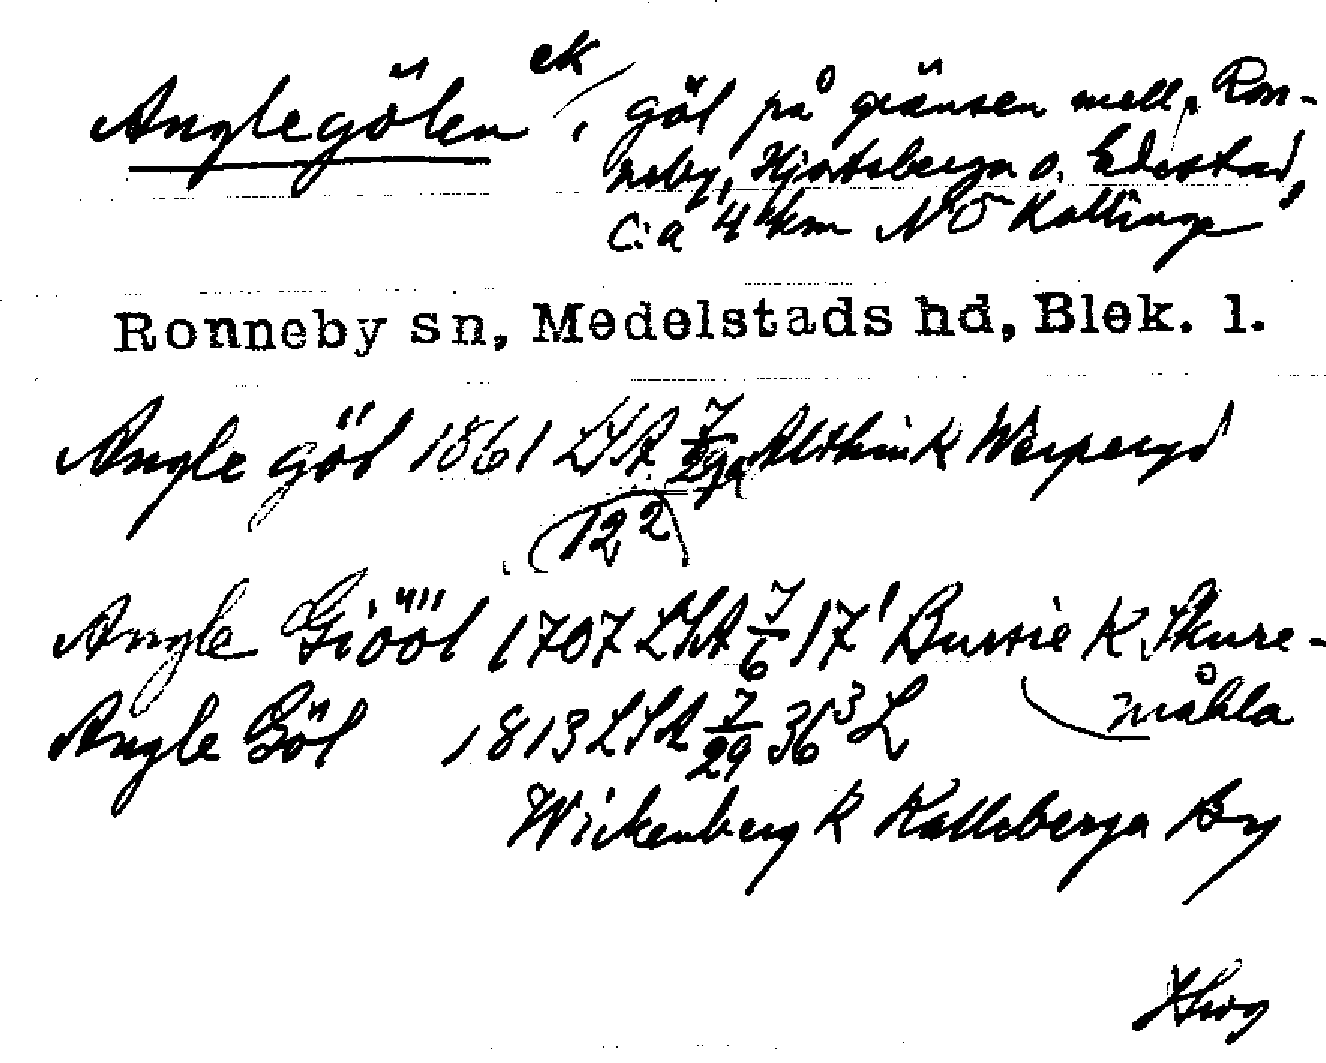 Anglegölen ek, göl på gränsen mell. Ron-
neby, Hjortsberga o. Edestad,
c:a 4 km NO Kallinge
Ronneby sn, Medelstads hd, Blek. l.
Angle göl 1861 LSA 7/29 Althin K
122
Angle Giööl 1707 LSA 7/6 17' Bursie K Skure-
måhla
Angle Göl 1813 LSA 7/29 36³ L
Wickenberg K Kalleberga By